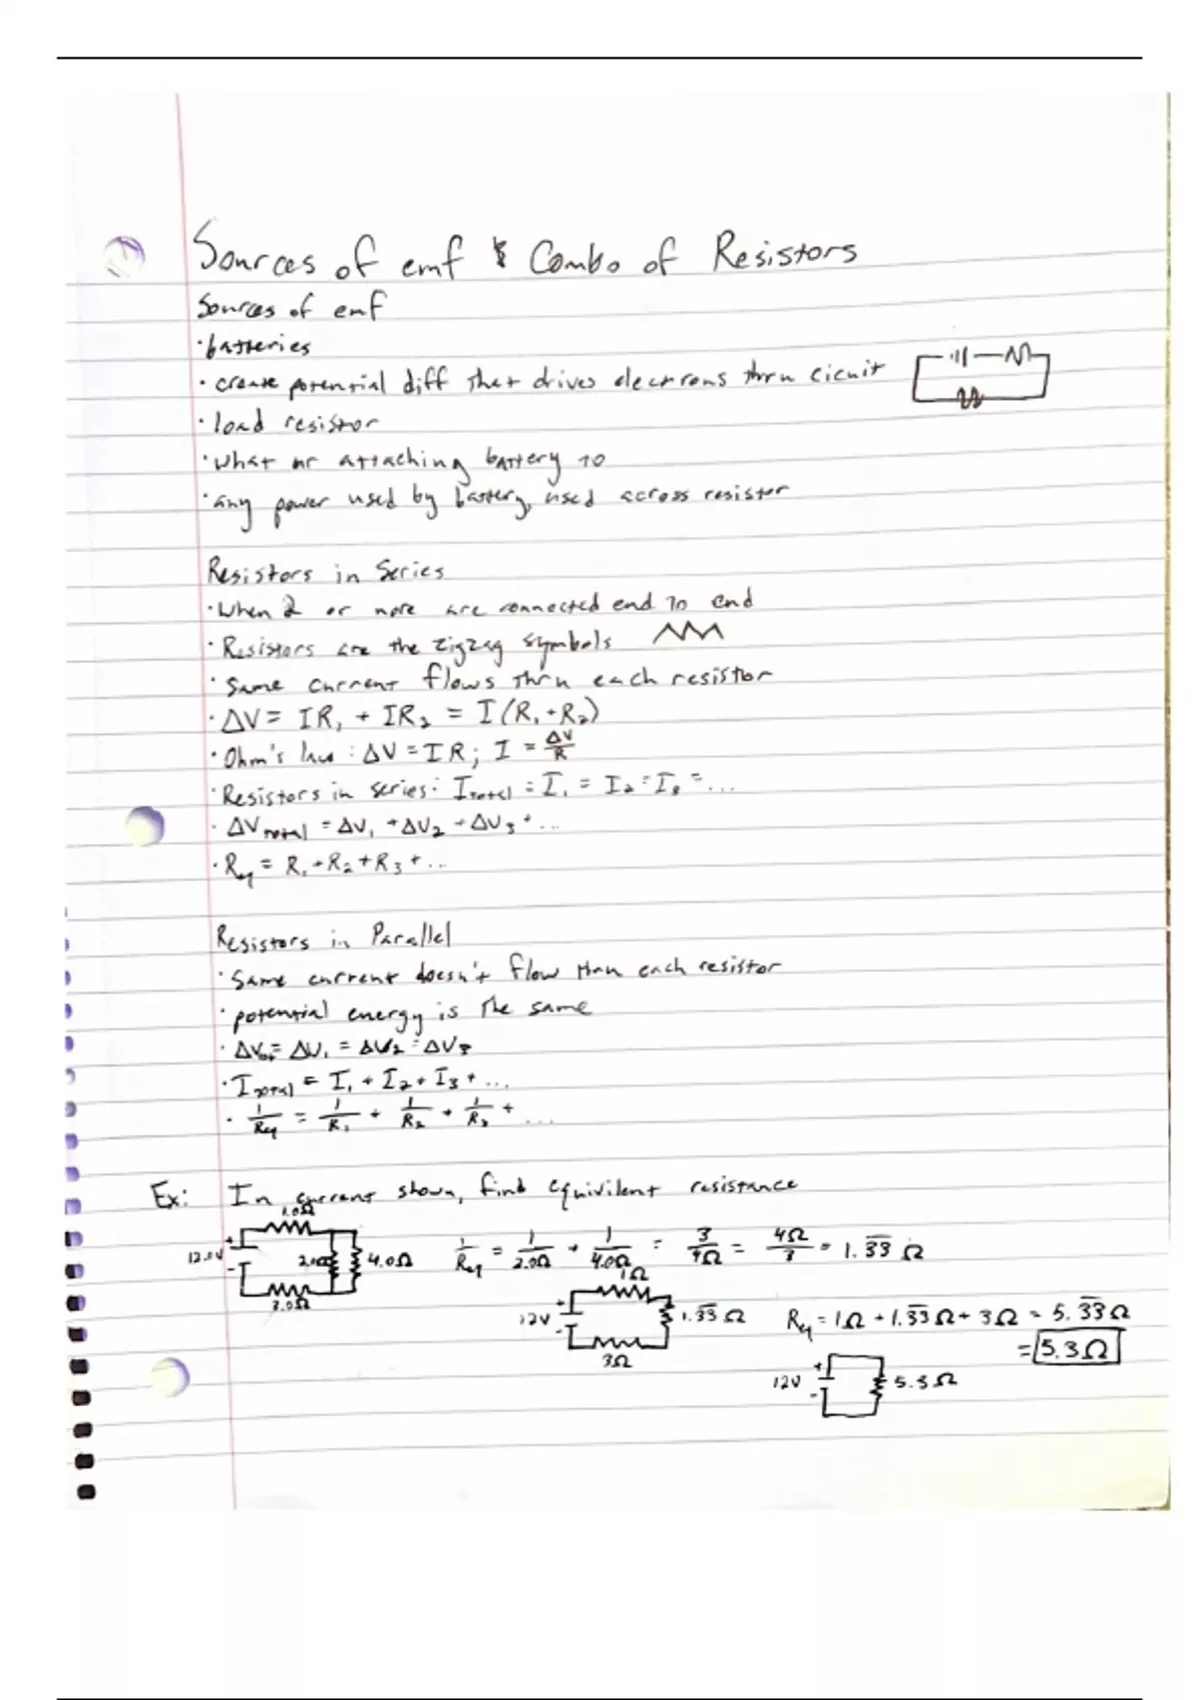 Sources of emf & Combo of Resistors
Sources of emf
• batteries
• create potential diff that drives electrons thru cicuit
• load resistor
• what ur attaching battery to
• any power used by battery, used across resistor
Resistors in Series
• When 2 or more are connected end to end
• Resistors are the zigzag symbols
• Same current flows thru each resistor
• ΔV = IR₁ + IR₂ = I(R₁+R₂)
• Ohm's law: ΔV = IR; I = ΔV/R
• Resistors in series: I_total = I₁ = I₂ = I₃ = ...
• ΔV_total = ΔV₁ + ΔV₂ + ΔV₃ + ...
• R_eq = R₁ + R₂ + R₃ + ...
Resistors in Parallel
• Same current doesn't flow thru each resistor
• potential energy is the same
• ΔV_tot = ΔV₁ = ΔV₂ = ΔV₃
• I_total = I₁ + I₂ + I₃ + ...
• 1/R_eq = 1/R₁ + 1/R₂ + 1/R₃ + ...
Ex: In current shown, find equivilent resistance
1.0Ω
12.0V 2.0Ω 4.0Ω 1/R_eq = 1/2.0Ω + 1/4.0Ω = 3/4Ω = 4Ω/3 = 1.33 Ω
3.0Ω
1Ω
12V 1.33 Ω R_eq = 1Ω + 1.33 Ω + 3Ω = 5.33 Ω
3Ω
= 5.3Ω
12V 5.3Ω